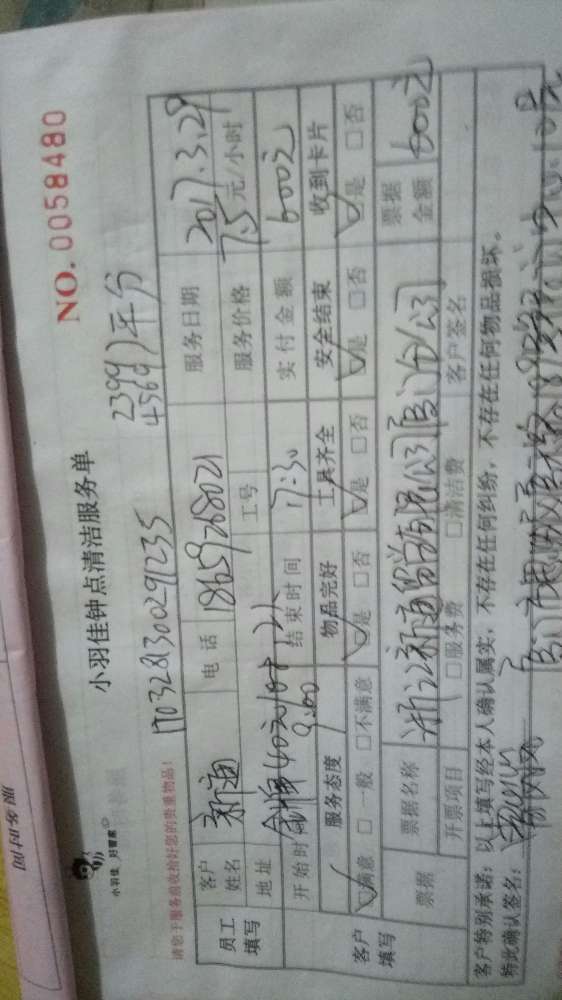 NO.0058480
小羽佳钟点清洁服务单
小羽佳 好管家
请您于服务前收拾好您的贵重物品!
1703281300291235
2399
4569 平分
员工填写
客户姓名 新通 电话 18659268021 服务日期 2017.3.29
地址 工号 服务价格 75元/小时
开始时间 9:00 结束时间 17:30 实付金额 600元
客户填写
服务态度 物品完好 工具齐全 安全结束 收到卡片
☑满意 □一般 □不满意 ☑是 □否 ☑是 □否 ☑是 □否 ☑是 □否
票据 票据名称 浙江新通留学有限公司厦门分公司 票据金额 600元
开票项目 □服务费 □清洁费 客户签名
客户特别承诺:以上填写经本人确认属实,不存在任何纠纷,不存在任何物品损坏。
特此确认签名: